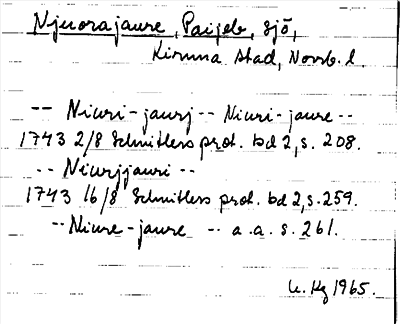 Njuorajaure, Paijeb, sjö,
Kiruna stad, Norrb. l.
-- Niuri-jaurj -- Niuri-jaure --
1743 2/8 Schnitlers prot. bd 2, s. 208.
-- Niurjjauri --
1743 16/8 Schnitlers prot. bd 2, s. 259.
-- Niure-jaure -- a.a. s. 261.
1965.